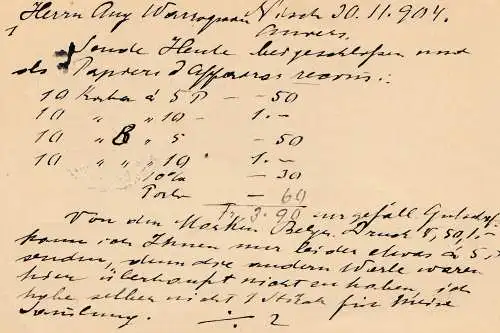 Herrn Aug Nisch 30.11.904.
Anvers.
Sende Heute beigeschloßen und
als Papiers d'affaires recom.:
10 Karten á 5 P — -50
10 " " 10 - 1.-
10 " 8 " 5 - -50
10 " " 10 1.-
10% - 30
Porto - 60
Fr. 3.90 zur gefäll Gutschrf.
Von den Marken Belg. Druck
kann ich Ihnen nur leider etwas á 5 P
senden, denn die andern Werte waren
hier überhaupt nicht zu haben, ich
habe selber nicht 1 Stück für meine
Samlung.